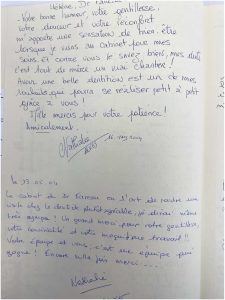 Votre bonne humeur, votre gentillesse,
votre douceur et votre réconfort
m'apporte une sensation de bien être
lorsque je viens au cabinet pour mes
soins. Et comme vous le savez bien, mes dents
c'est tout de même un vrai chantier !
Avoir une belle dentition est un de mes
souhaits, que pourra se réaliser petit à petit
grâce à vous !
Mille mercis pour votre patience !
Amicalement.
Nathalie
Le cabinet du Dr ou l'art de rendre une
visite chez le dentiste plutôt agréable, je dirais même
très sympa ! Un grand merci pour votre gentillesse,
votre convivialité et votre magnifique travail !!
Votre équipe et vous, c'est une équipe qui
gagne ! Encore mille fois merci ...
Nathalie